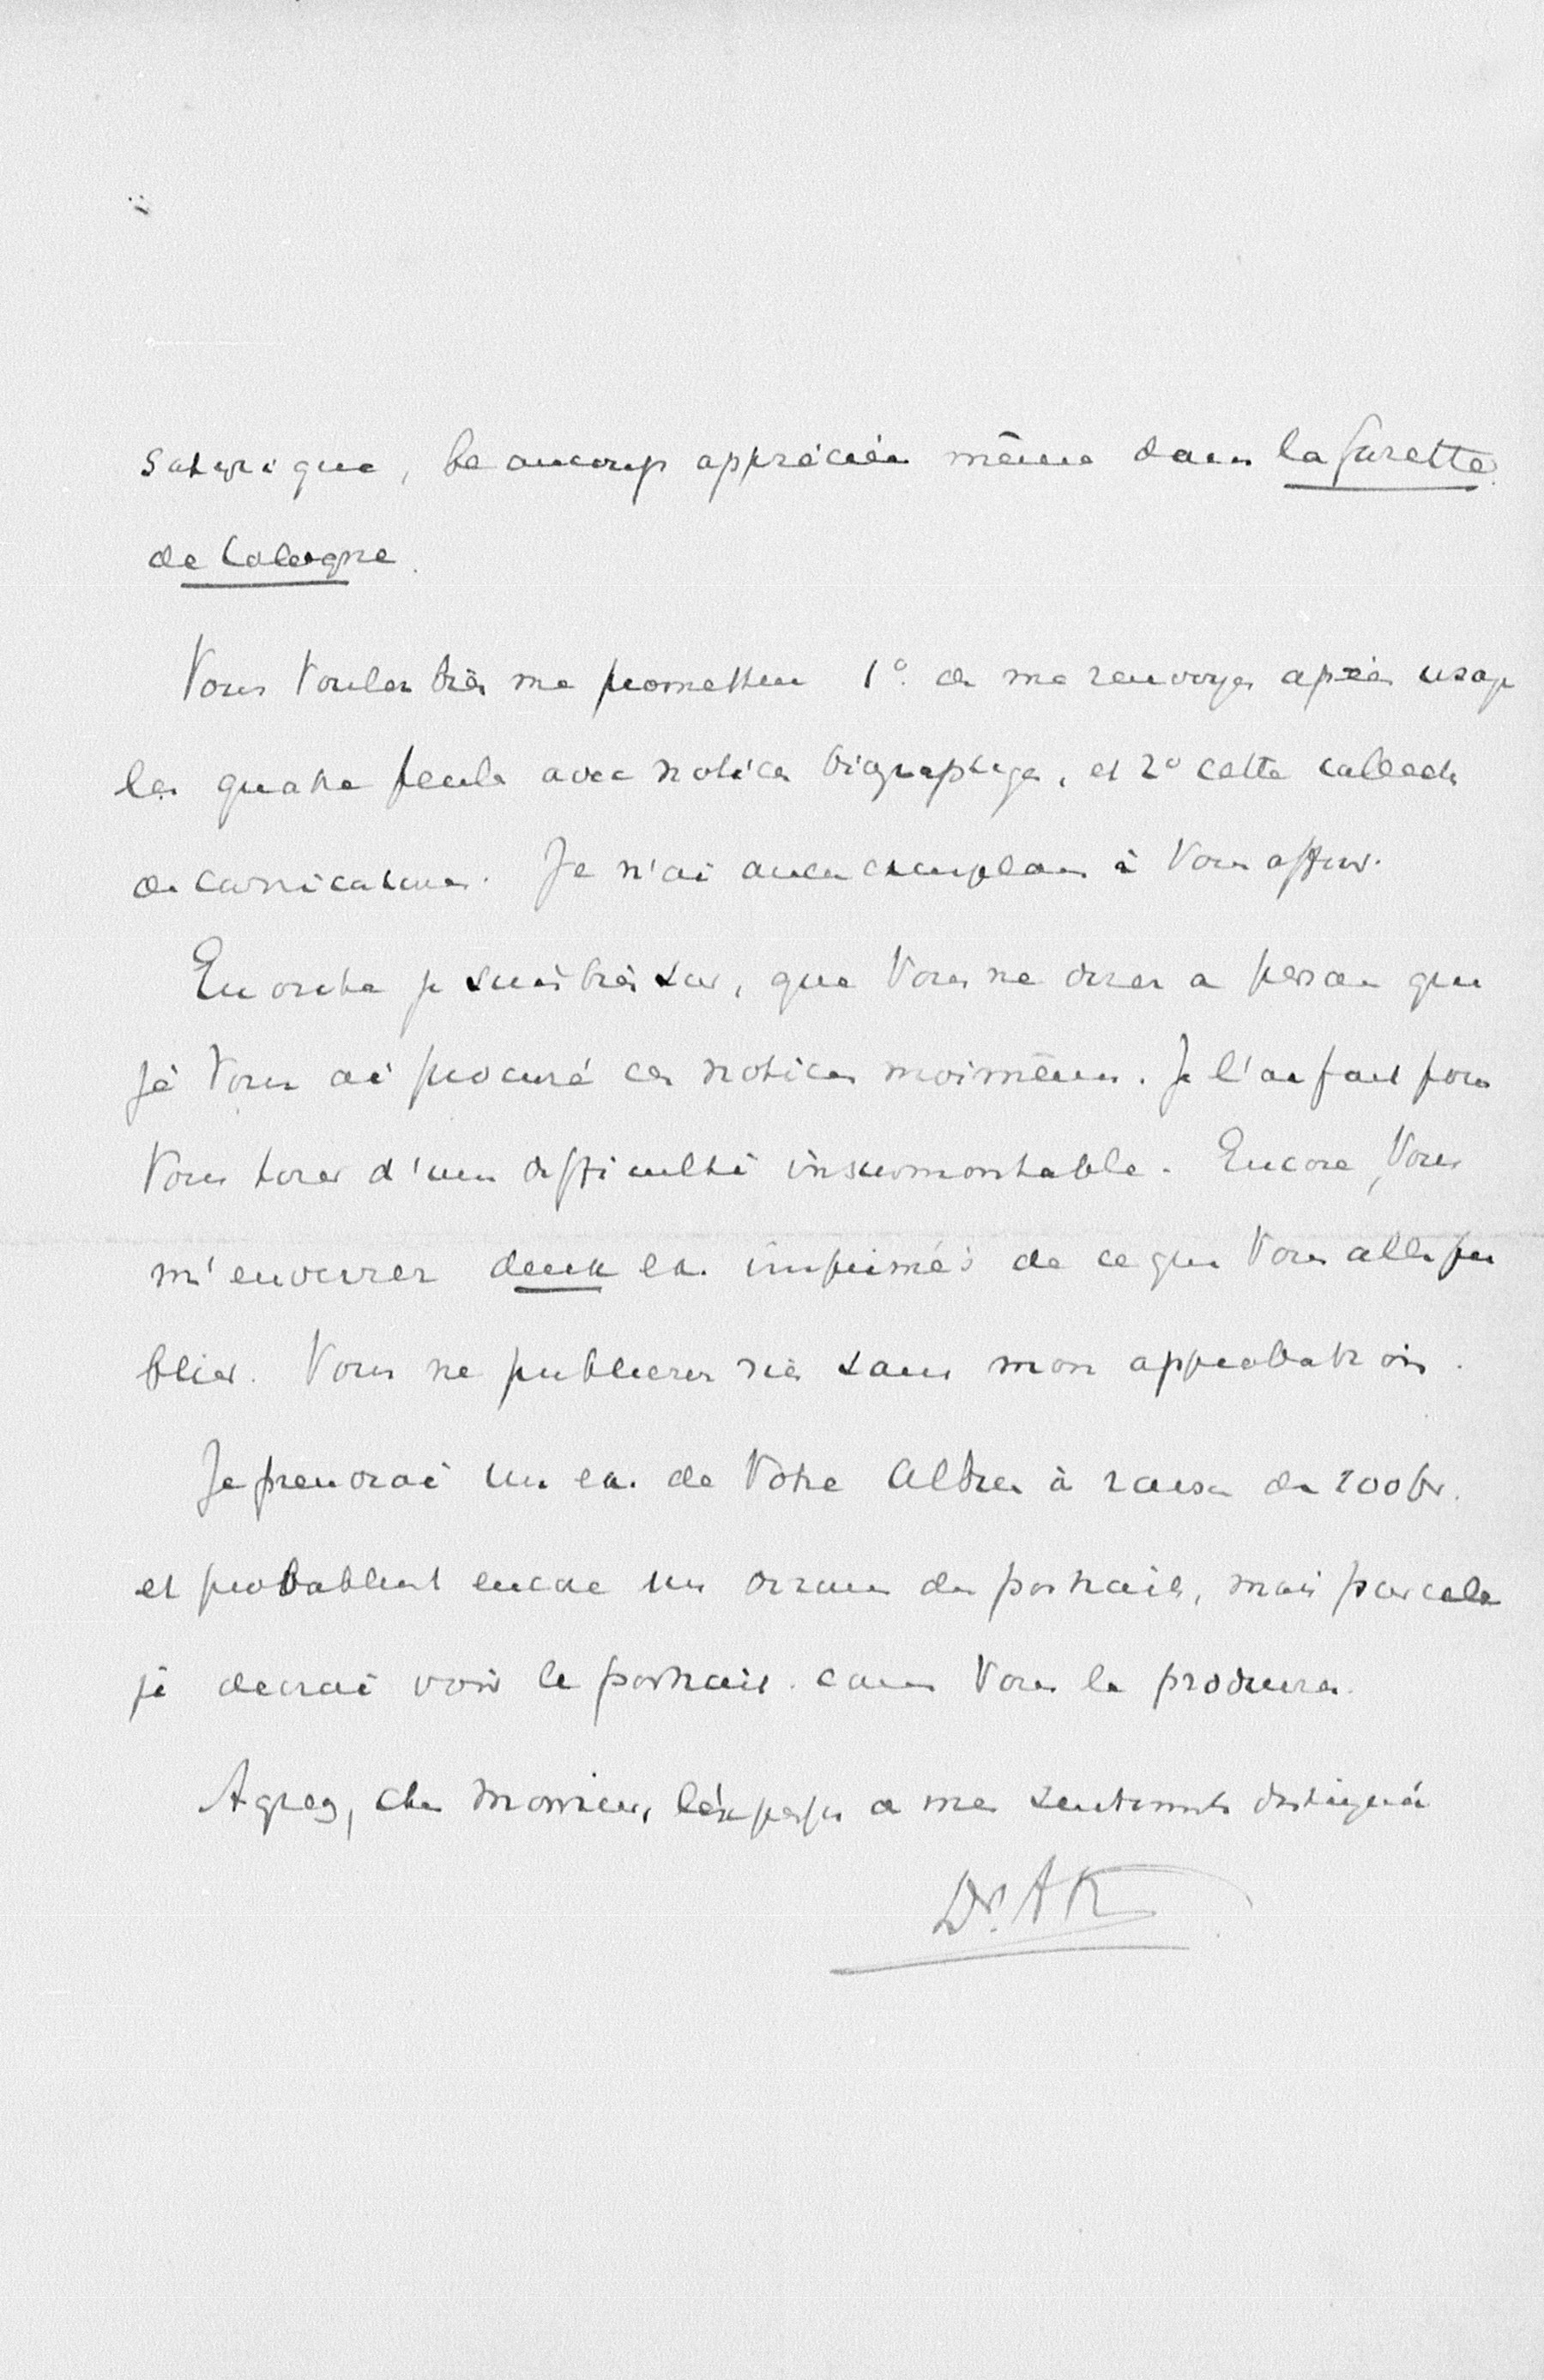 satyrique, beaucoup appréciée même dans la Gazette
de Cologne.
Vous voulez bien me promettre 1° de me renvoyer après usage
les quatre feuils avec notices biographiques, et 2° cette collecte
de carricatures. Je n'ai aucun exemplaire à Vous offrir.
En outre je suis bien sur, que Vous ne direz a personne que
je Vous ai procuré ces notices moimême. Je l'ai fait pour
Vous tirer d'une difficulté insurmontable. Encore, Vous
m'enverrez deux ex. imprimés de ce que Vous allez pu
blier. Vous ne publierez rien sans mon approbation.
Je prendrai un ex. de Votre Album à raison de 200 fr.
et probablement encore une dizaine de portraits, mais pour cela
je devrai voir le portrait comme Vous le produirez.
Agreez, cher Monsieur, l'expression de mes sentiments distingués
Dr. AK